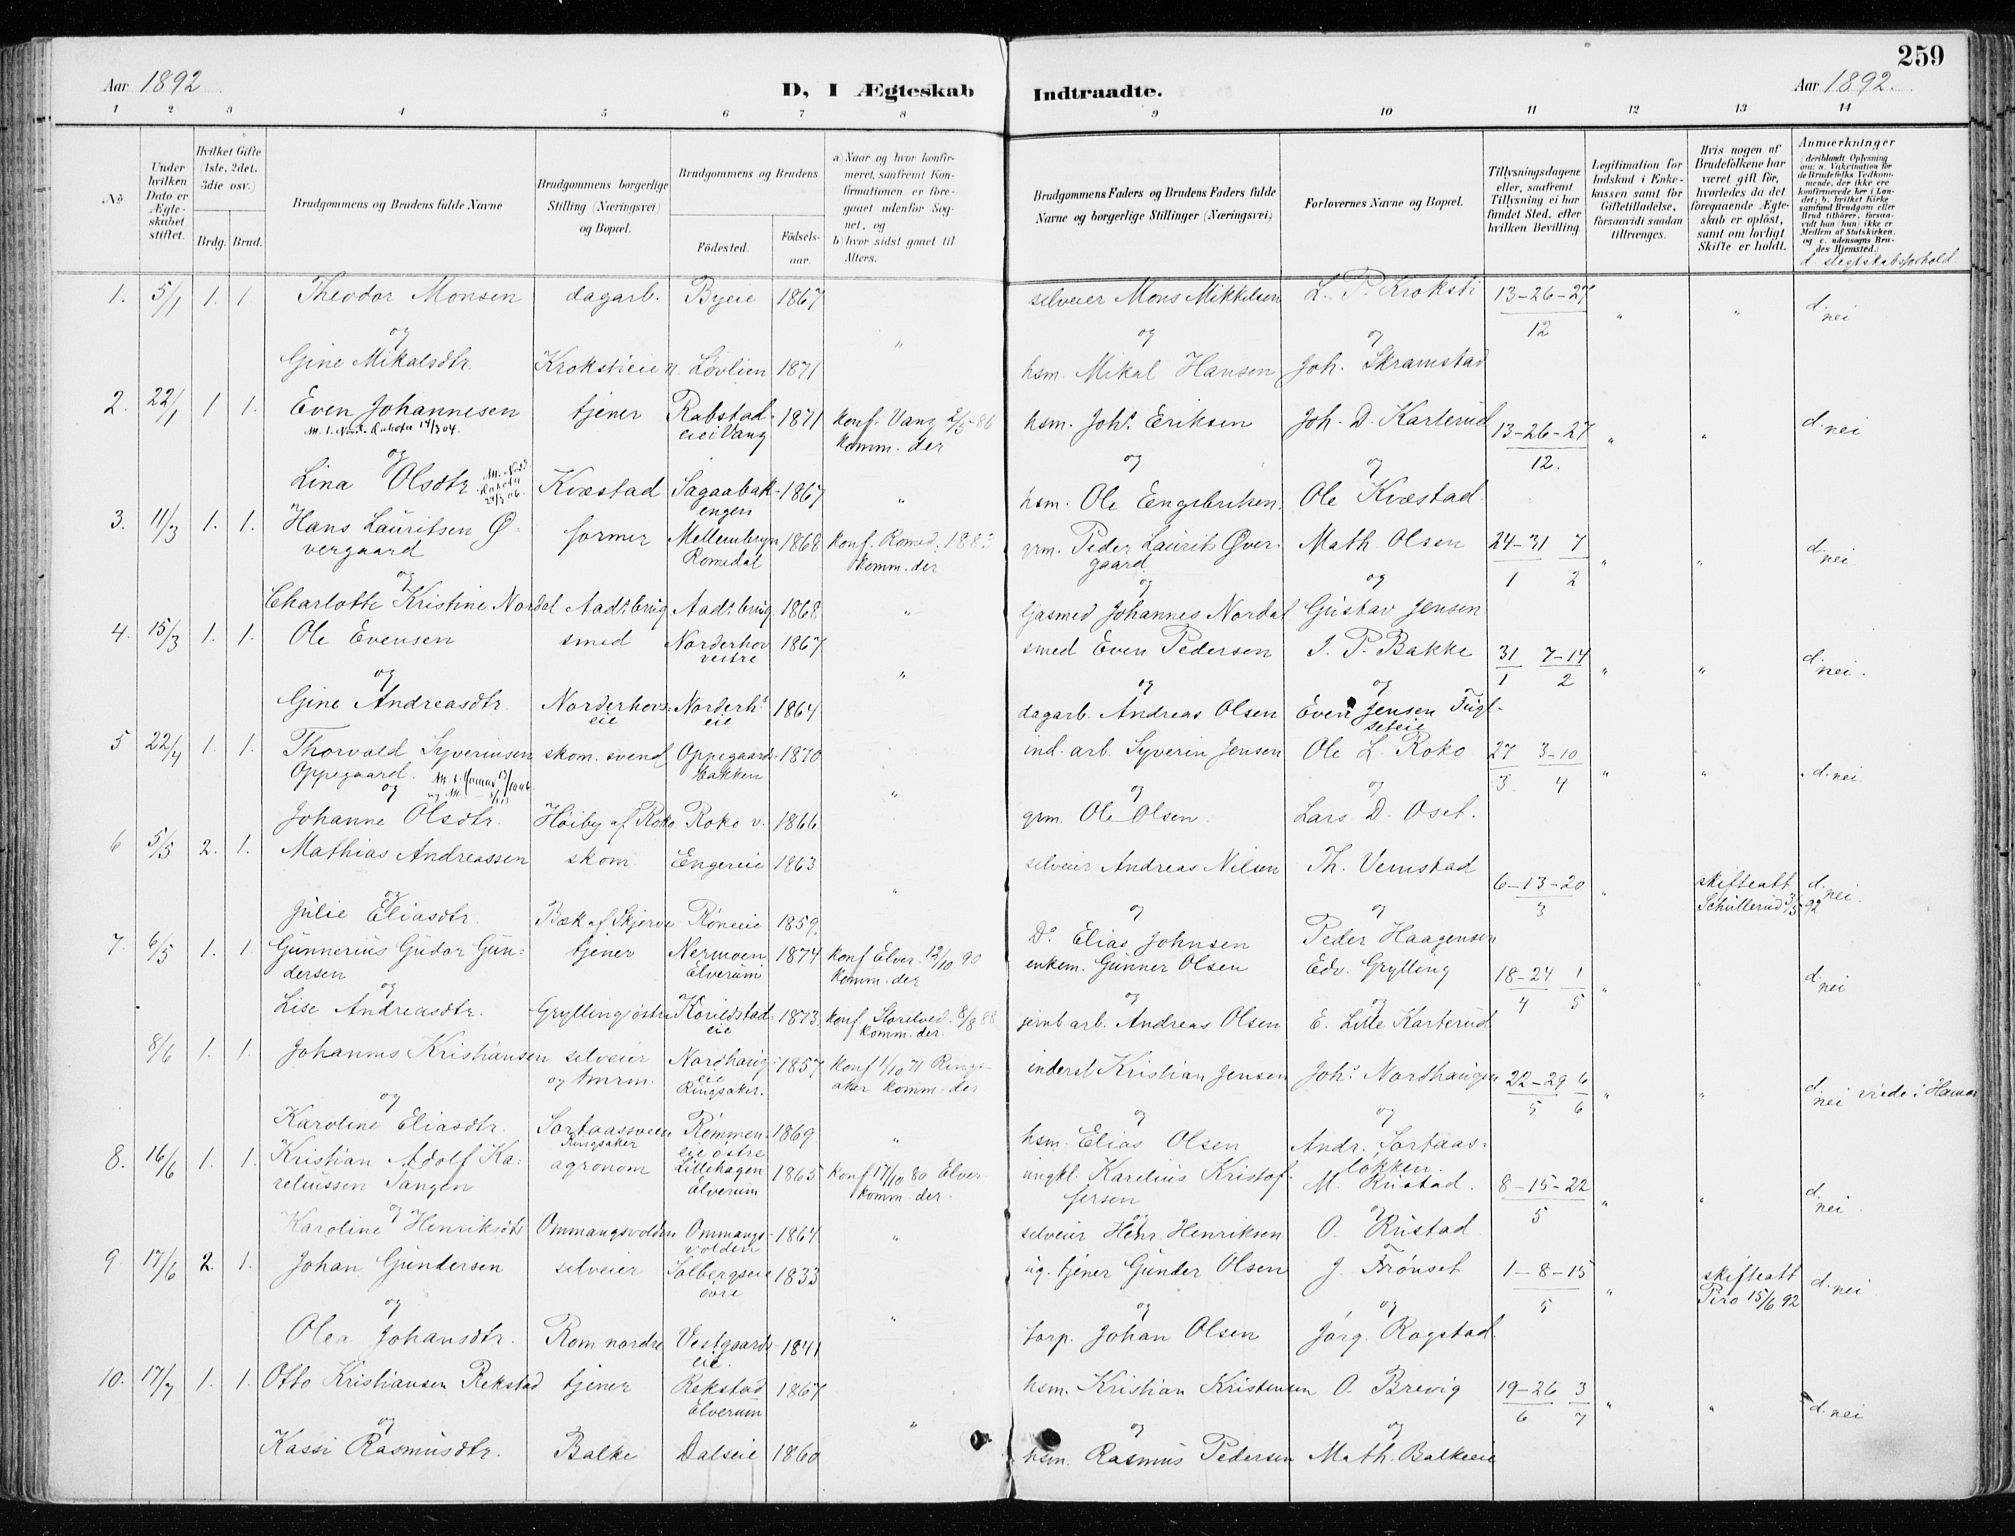 259
Aar 1892
D, I Ægteskab Indtraadte.
Aar 1892.
1 2 3 4 5 6 7 8 9 10 11 12 13 14
No
Under hvilken Dato er Ægteskabet stiftet.
Hvilket Gifte (1ste, 2det, 3die osv.)
Brdg. Brud.
Brudgommens og Brudens fulde Navne
Brudgommens borgerlige Stilling (Næringsvei) og Bopæl.
Brudgommens og Brudens
Fødested. Fødselsaar.
a) Naar og hvor konfirmeret, saafremt Konfirmationen er foregaaet udenfor Sognet, og b) hvor sidst gaaet til Alters.
Brudgommens Faders og Brudens Faders fulde Navne og borgerlige Stillinger (Næringsvei)
Forlovernes Navne og Bopæl.
Tillysningsdagene eller, saafremt Tillysning ei har fundet Sted, efter hvilken Bevilling.
Legitimation for Indskud i Enkekassen samt for Giftetilladelse, forsaavidt saadan tiltrænges.
Hvis nogen af Brudefolkene har været gift før, hvorledes da det foregaaende Ægteskab er opløst, samt om lovligt Skifte er holdt.
Anmærkninger (deriblandt Oplysning om: a. Vakcination for de Brudefolks Vedkommende, der ikke ere konfirmerede her i Landet; b. hvilket Kirkesamfund Brudgom eller Brud tilhører, forsaavidt han (hun) ikke er Medlem af Statskirken, og c. udensogns Brudes Hjemsted.)
d. slegtskabsforhold
1. 5/1 1. 1 Theodor Monsen dagarb. Byeie 1867 selveier Mons Mikkelsen L. P. Kroksti 13-26-27/12 " " d. nei
og " og og
Gine Mikalsdtr. Kroksti eie n. Løvlien 1871 hsm. Mikal Hansen Joh. Skramstad
2. 22/1 1 1. Even Johannesen tjener Rabstad eie i Vang 1871 konf. Vang 2/5-86 komm. der hsm. Johs. Eriksen Joh. D. Karterud 13-26-27/12. " " d. nei
og og og
Lina Olsdtr Kvæstad Sagaabakengen 1867 " hsm. Ole Engebriksen. Ole Kvæstad
3. 11/3 1. 1. Hans Lauritsen Øvergaard former Mellembryn Romedal 1868 konf. Romed. 1883 komm. der grm. Peder Laurits Øvergaard Math. Olsen 24-31/1 7/2 " " d. nei
og og og
Charlotte Kristine Nordal Aadsbrug Aadsbrug 1868 " ljasmed Johannes Nordal Gustav Jensen
4. 15/3 1. 1. Ole Evensen smed Norderhov vestre 1867 smed Even Pedersen I. P. Bakke 31/1 7-14/2 " " d. nei.
og " og og
Gine Andreasdtr. Norderhovs eie Norderhs eie 1864 dagarb. Andreas Olsen Even Jensen Fuglseteie
5 22/4 1. 1. Thorvald Syverinsen Oppegaard. skom. svend Oppegaardsbakken 1870 ind. arb. Syverin Jensen Ole L. Roko 27/3. 3-10/4 " " d. nei
og " og og
Johanne Olsdtr. Høiby af Roko Roko v. 1866 grm. Ole Olsen. Lars D. Oset.
6 5/5 2. 1. Mathias Andreassen skom Engereie 1863 selveier Andreas Nilsen Th. Vemstad 6-13-20/3 " skifteatt Schullerud 3/5 92 d. nei
og " og og
Julie Eliasdtr. Bæk af Skjerve Røneie 1859. Do. Elias Johnsen Peder Haagensen
7. 6/5 1. 1. Gunnerius Gudor Gundersen tjener Nermoen Elverum 1874 konf Elver. 12/10 90 komm. der enkem. Gunner Olsen Edv. Grylling 18-24/4 1/5 " " d. nei
og og og
Lise Andreasdtr. Grylling østre Kvildstad eie 1873. konf Storelved. 8/8 88 komm. der. jernb arb. Andreas Olsen E. Lille Karterud
8/6 1. 1. Johannes Kristiansen selveier og tmrm. Nordhaug eie Ringsaker. 1857 konf 1/10 71 Ringsaker komm. der inderst Kristian Jensen Johs. Nordhaugen 22-29/5 6/6 " " d. nei viede i Hamar
og og og
Karoline Eliasdtr. Sortaasveen Ringsaker Rømmen eie østre 1869 " hsm. Elias Olsen Andr. Sortaasløkken.
8. 16/6 1. 1. Kristian Adolf Kareliussen Tangen agronom Lillehagen Elverum 1865 konf 17/10 80 Elver. komm. der. ungkl. Karelius Kristoffersen M. Rustad. 8-15-22/5 " " d. nei
og og og
Karoline Henriksdtr Ommangsvolden Ommangsvolden 1864 " selveier Henr. Henriksen O. Rustad
9 17/6 2. 1. Johan Gundersen selveier Solbergseie øvre 1833 ug. tjener Gunder Olsen J. Frønset 1-8-15/5 " skifteatt Piro 15/6 92 d. nei
og " og og
Olea Johansdtr. Rom nordre Vestgaardseie. 1841 torp. Johan Olsen Jørg. Rogstad.
10. 17/7 1. 1. Otto Kristiansen Rekstad tjener Rekstad Elverum 1867 hsm. Kristian Kristensen O. Brevig 19-26/6 3/7 " " d. nei
og " og og
Kassi Rasmusdtr. Balke Dalseie 1860 hsm. Rasmus Pedersen Math. Balkeeie